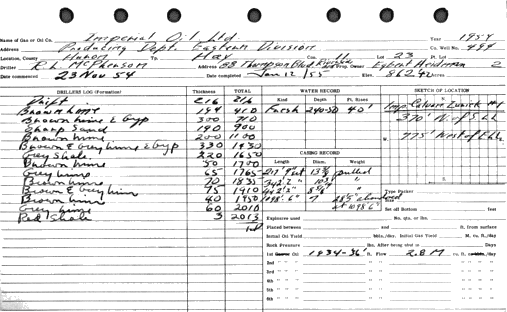 Name of Gas or Oil Co. Imperial Oil Ltd. Year 1954
Address Producing Dept. Eastern Division Co. Well No. 494
Location, County Huron Tp. Hay Con. 11 Lot 23 Pt. Lot
Driller R.L. McPherson Address 88 Thompson Blvd Prop. Owner Heideman 2
Date commenced 23 Nov 54 Date completed Jan 12/55 Elev. Acres
DRILLERS LOG (Formation) Thickness TOTAL WATER RECORD SKETCH OF LOCATION
Kind Depth Ft. Rises
Drift 216 216
Brown lime 194 410 Fresh 240-50 40'
Brown lime & Gyp 300 710
Sharp Sand 190 900
Brown lime 200 1100
Brown & Grey lime & Gyp 330 1430
Grey Shale 220 1650 CASING RECORD
Brown lime 50 1700 Length Diam. Weight
Grey lime 65 1765 pulled
Brown lime 70 1835
Brown & Grey lime 75 1910
Brown lime 40 1950 1098'.6" 7
Grey lime 60 2010 at 1098.6"
Red Shale 3 2013
370' N of S LL
775' West of ELL
Type Packer
Set off Bottom feet
Explosive used No. qts. or lbs.
Placed between and ft. from surface
Initial Oil Yield Bbls./day. Initial Gas Yield M. cu. ft./day
Rock Pressure lbs. After being shut in Days
1st 1934-36 ft. Flow 2.8 M cu. ft.
2nd " " "
3rd " " "
4th " " "
5th " " "
6th " " "